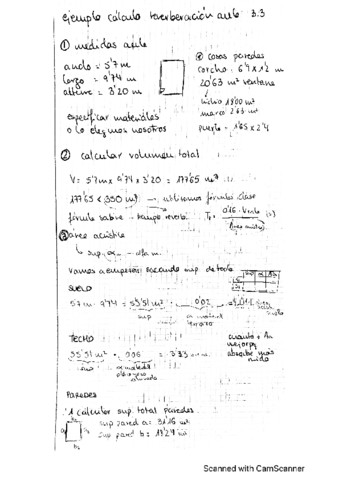 ejemplo cálculo reverberación aula 3.3
① medidas aula
ancho = 5'7 m
largo = 9'74 m
altura = 3'20 m
especificar materiales
o lo elegimos nosotros
cosas paredes
corcho = 6'4 x 1'2 m
20'63 m² ventana
vidrio 18'00 m²
marco 2'63 m²
puerta = 1'65 x 2'4
② calcular volumen total
V = 5'7m x 9'74 x 3'20 = 177'65 m³
177'65 < 350 m³ → utilizamos fórmula
fórmula sabine → tiempo reverb.
③ área acústica
sup. α → alfa m.
Vamos a empezar sacando sup. de todo
SUELO
5'7 m · 9'74 = 55'51 m² · 0'02
sup α material
terrazo
TECHO
55'51 m² · = 3'33
sup α material
cuanto + Aα
mejor pq
absorbe más
ruido
PAREDES
1 calcular sup. total paredes
sup pared a = 31'16 m²
sup pared b = 18'24 m²
Scanned with CamScanner